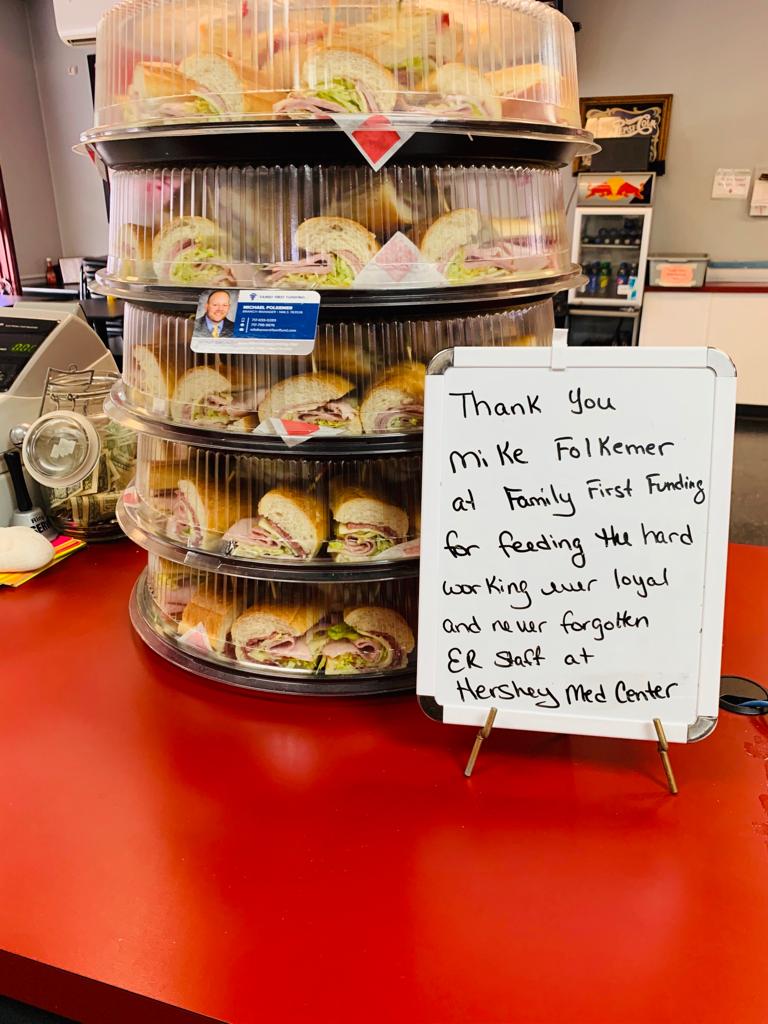 FAMILY FIRST FUNDING
MICHAEL FOLKEMER
BRANCH MANAGER
Thank You
Mike Folkemer
at Family First Funding
for feeding the hard
working ever loyal
and never forgotten
ER Staff at
Hershey Med Center
Red Bull